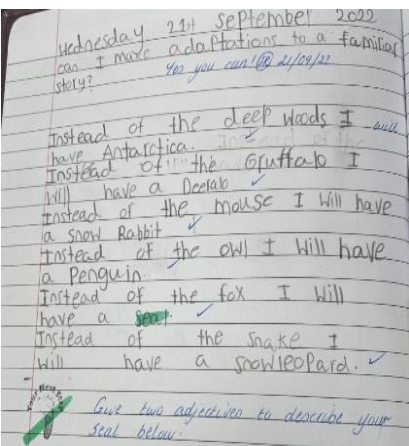 Wednesday 21st September 2022
can I make adaptations to a familiar
story? Yes you can! 21/09/22
Instead of the deep woods I will
have Antarctica.
Instead of the Gruffalo I
will have a Deelalo
Instead of the mouse I will have
a snow Rabbit
Instead of the owl I will have
a Penguin.
Instead of the fox I will
have a seal.
Instead of the snake I
will have a snowleopard.
Your Next Step
Give two adjectives to describe your
seal below.